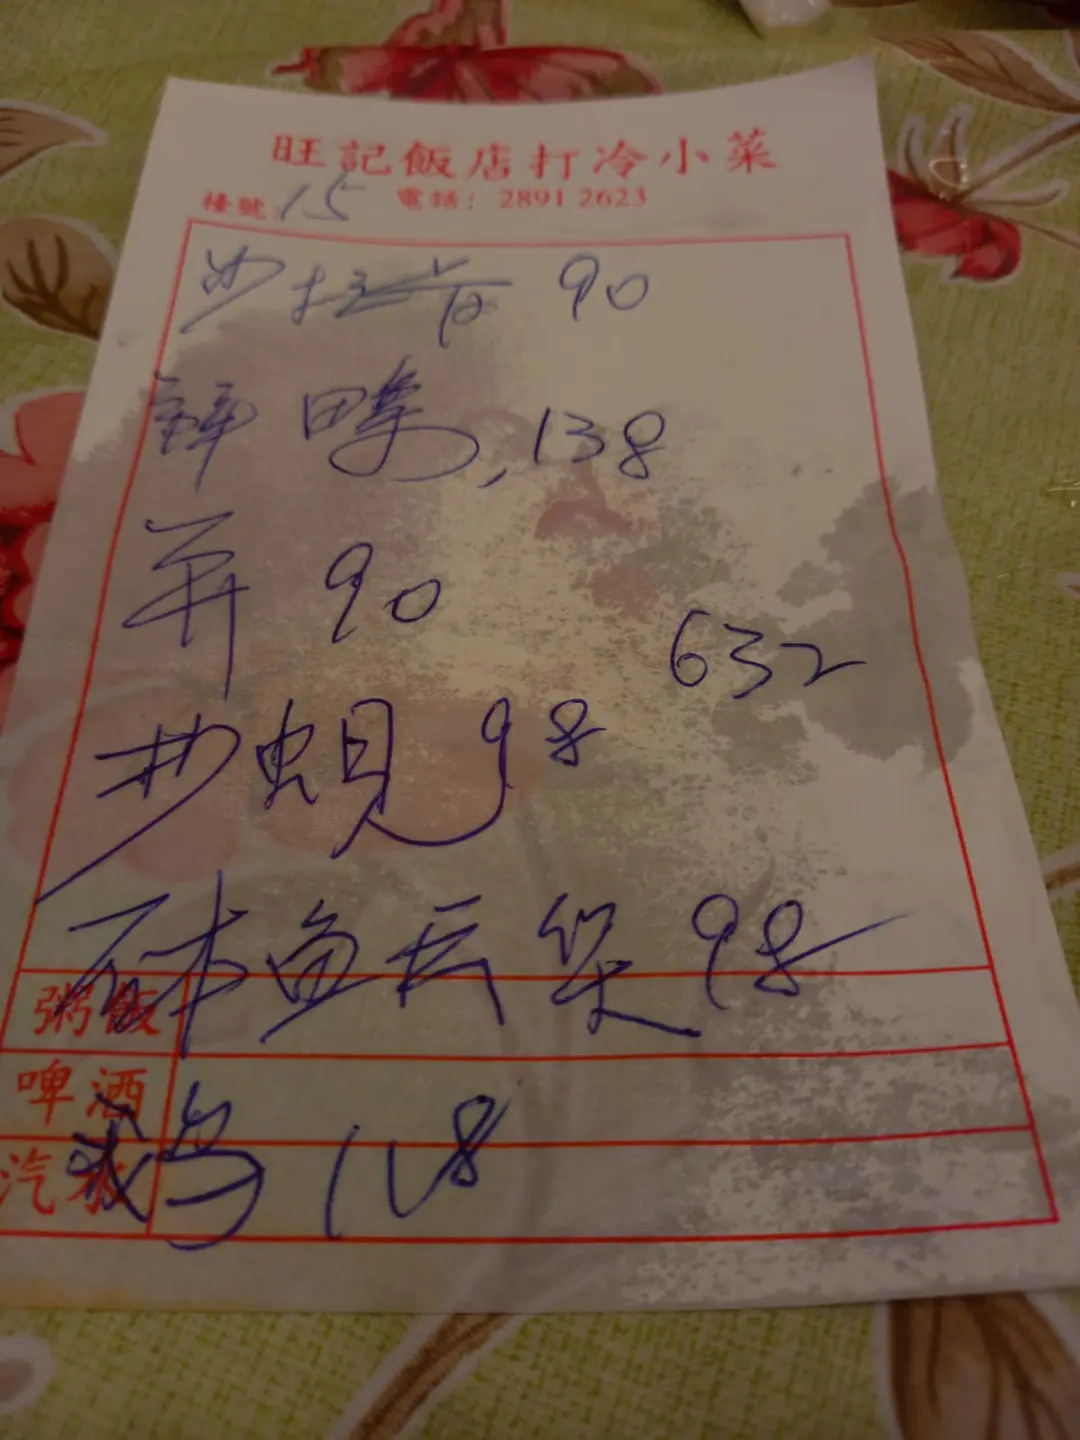 旺記飯店打冷小菜
檯號 15 電話：2891 2623
沙拉骨 90
138
90
632
沙蜆 98
砵魚云煲 98
粥飯
啤酒
汽水
118